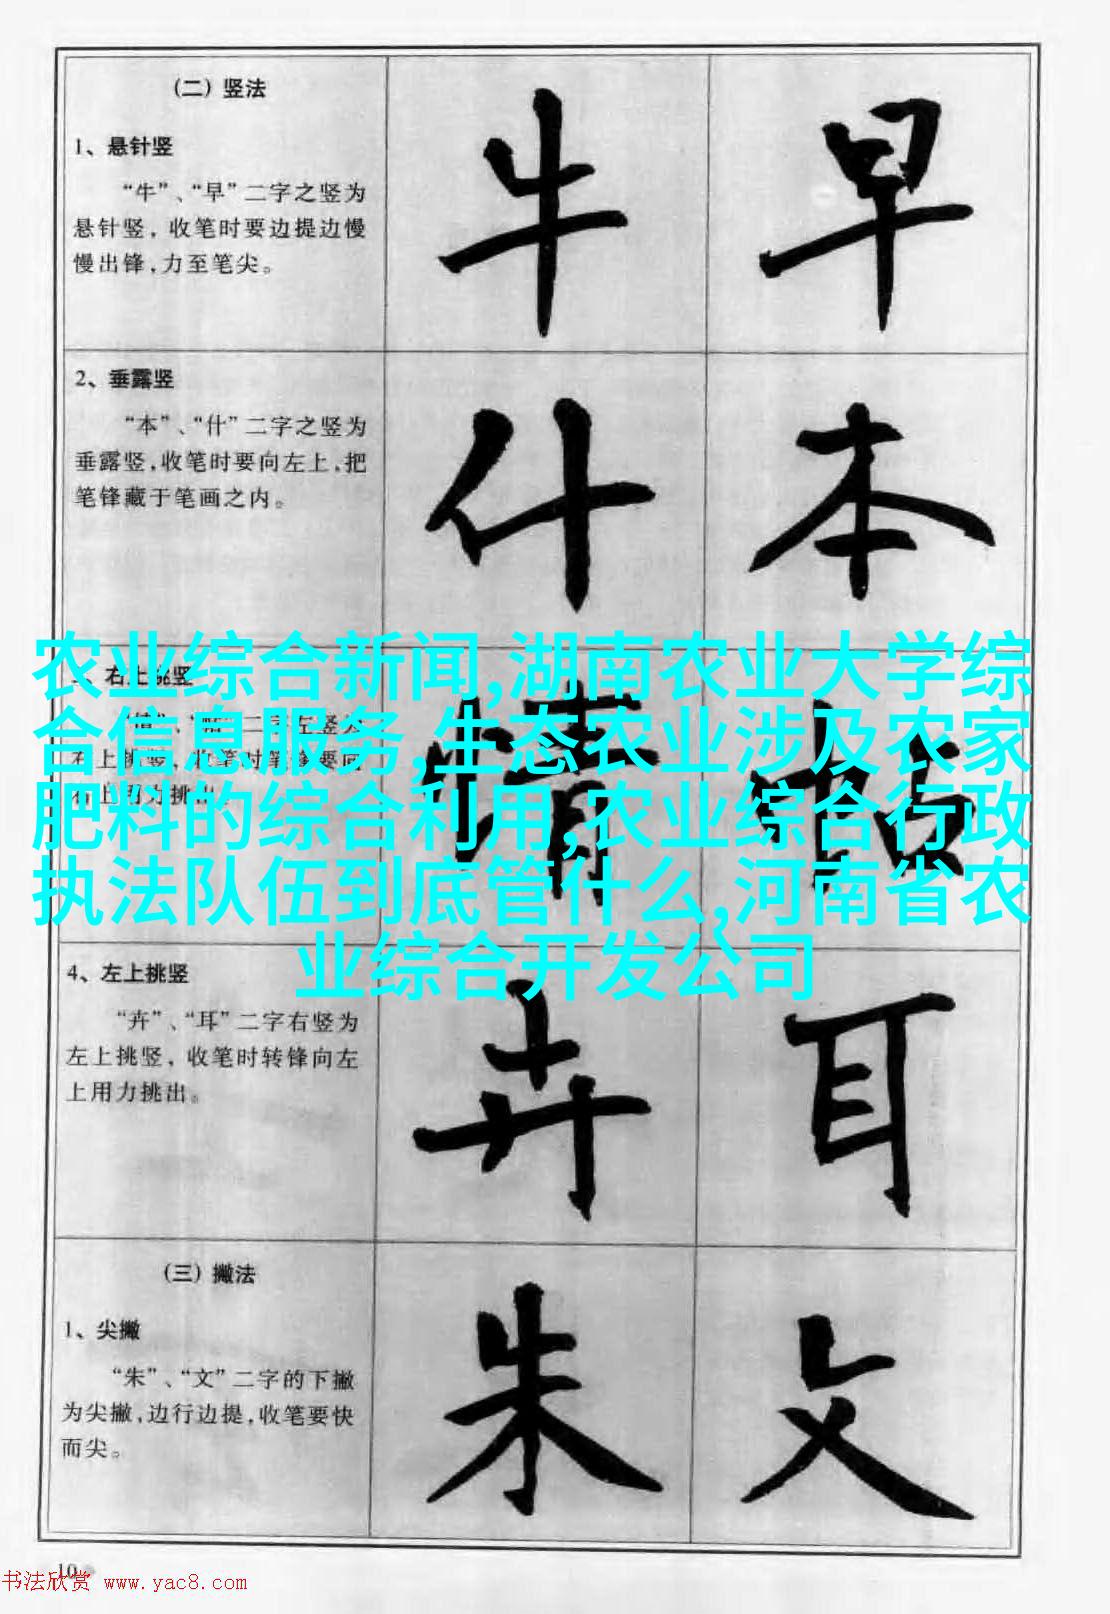 (二) 竖法
1、悬针竖
“牛”、“早”二字之竖为
悬针竖，收笔时要边提边慢
慢出锋，力至笔尖。
牛
早
2、垂露竖
“本”、“什”二字之竖为
垂露竖，收笔时要向左上，把
笔锋藏于笔画之内。
什
本
农业综合新闻,湖南农业大学综
合信息服务,生态农业涉及农家
肥料的综合利用,农业综合行政
执法队伍到底管什么,河南省农
业综合开发公司
右上挑竖
二字左竖为
情
帖
4、左上挑竖
“卉”、“耳”二字右竖为
左上挑竖，收笔时转锋向左
上用力挑出。
卉
耳
(三) 撇法
1、尖撇
“朱”、“文”二字的下撇
为尖撇，边行边提，收笔要快
而尖。
朱
文
10
书法欣赏 www.yac8.com